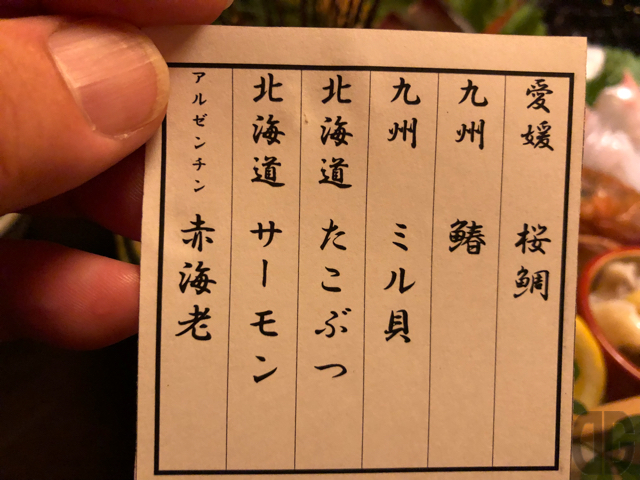 愛媛 桜鯛
九州 鰆
九州 ミル貝
北海道 たこぶつ
北海道 サーモン
アルゼンチン 赤海老